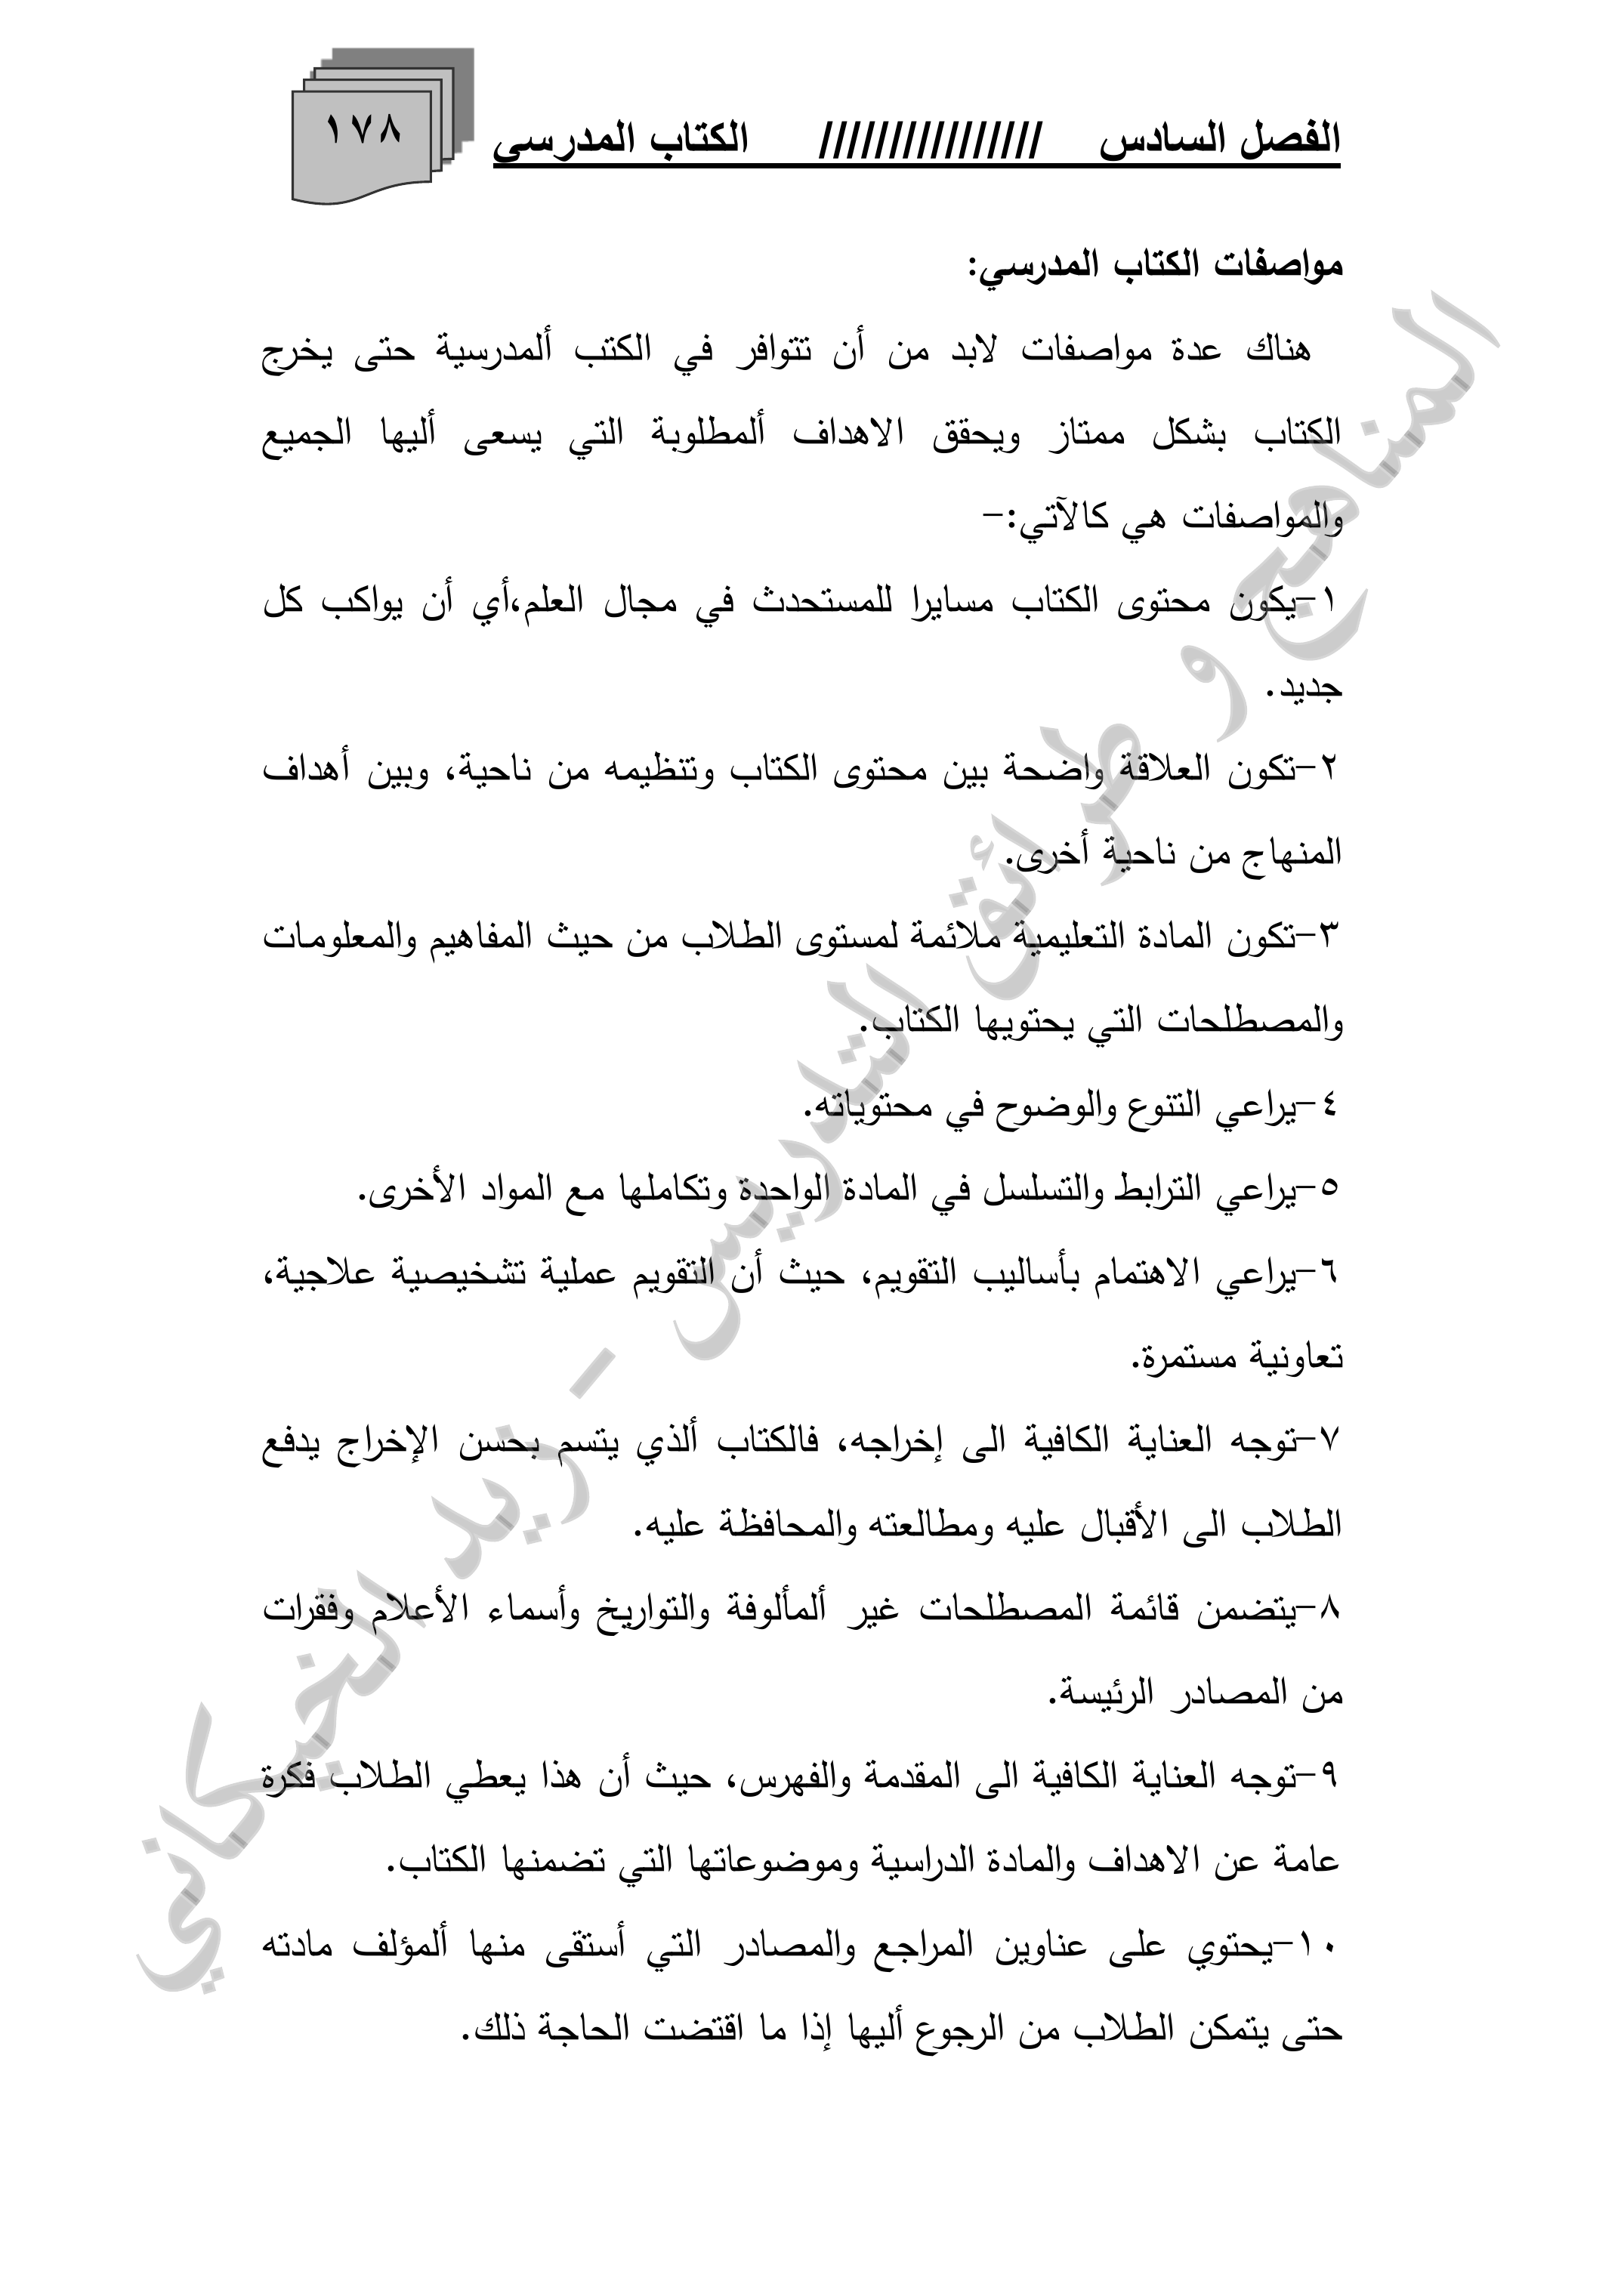 الفصل السادس //////////////// الكتاب المدرسي
١٧٨
مواصفات الكتاب المدرسي:
هناك عدة مواصفات لابد من أن تتوافر في الكتب ألمدرسية حتى يخرج
الكتاب بشكل ممتاز ويحقق الاهداف ألمطلوبة التي يسعى أليها الجميع
والمواصفات هي كالآتي:-
١-يكون محتوى الكتاب مسايرا للمستحدث في مجال العلم،أي أن يواكب كل
جديد.
٢-تكون العلاقة واضحة بين محتوى الكتاب وتنظيمه من ناحية، وبين أهداف
المنهاج من ناحية أخرى.
٣-تكون المادة التعليمية ملائمة لمستوى الطلاب من حيث المفاهيم والمعلومات
والمصطلحات التي يحتويها الكتاب.
٤-يراعي التنوع والوضوح في محتوياته.
٥-يراعي الترابط والتسلسل في المادة الواحدة وتكاملها مع المواد الأخرى.
٦-يراعي الاهتمام بأساليب التقويم، حيث أن التقويم عملية تشخيصية علاجية،
تعاونية مستمرة.
٧-توجه العناية الكافية الى إخراجه، فالكتاب ألذي يتسم بحسن الإخراج يدفع
الطلاب الى الأقبال عليه ومطالعته والمحافظة عليه.
٨-يتضمن قائمة المصطلحات غير ألمألوفة والتواريخ وأسماء الأعلام وفقرات
من المصادر الرئيسة.
٩-توجه العناية الكافية الى المقدمة والفهرس، حيث أن هذا يعطي الطلاب فكرة
عامة عن الاهداف والمادة الدراسية وموضوعاتها التي تضمنها الكتاب.
١٠-يحتوي على عناوين المراجع والمصادر التي أستقى منها ألمؤلف مادته
حتى يتمكن الطلاب من الرجوع أليها إذا ما اقتضت الحاجة ذلك.
المناهج و طرائق التدريس - زيد الخيكاني